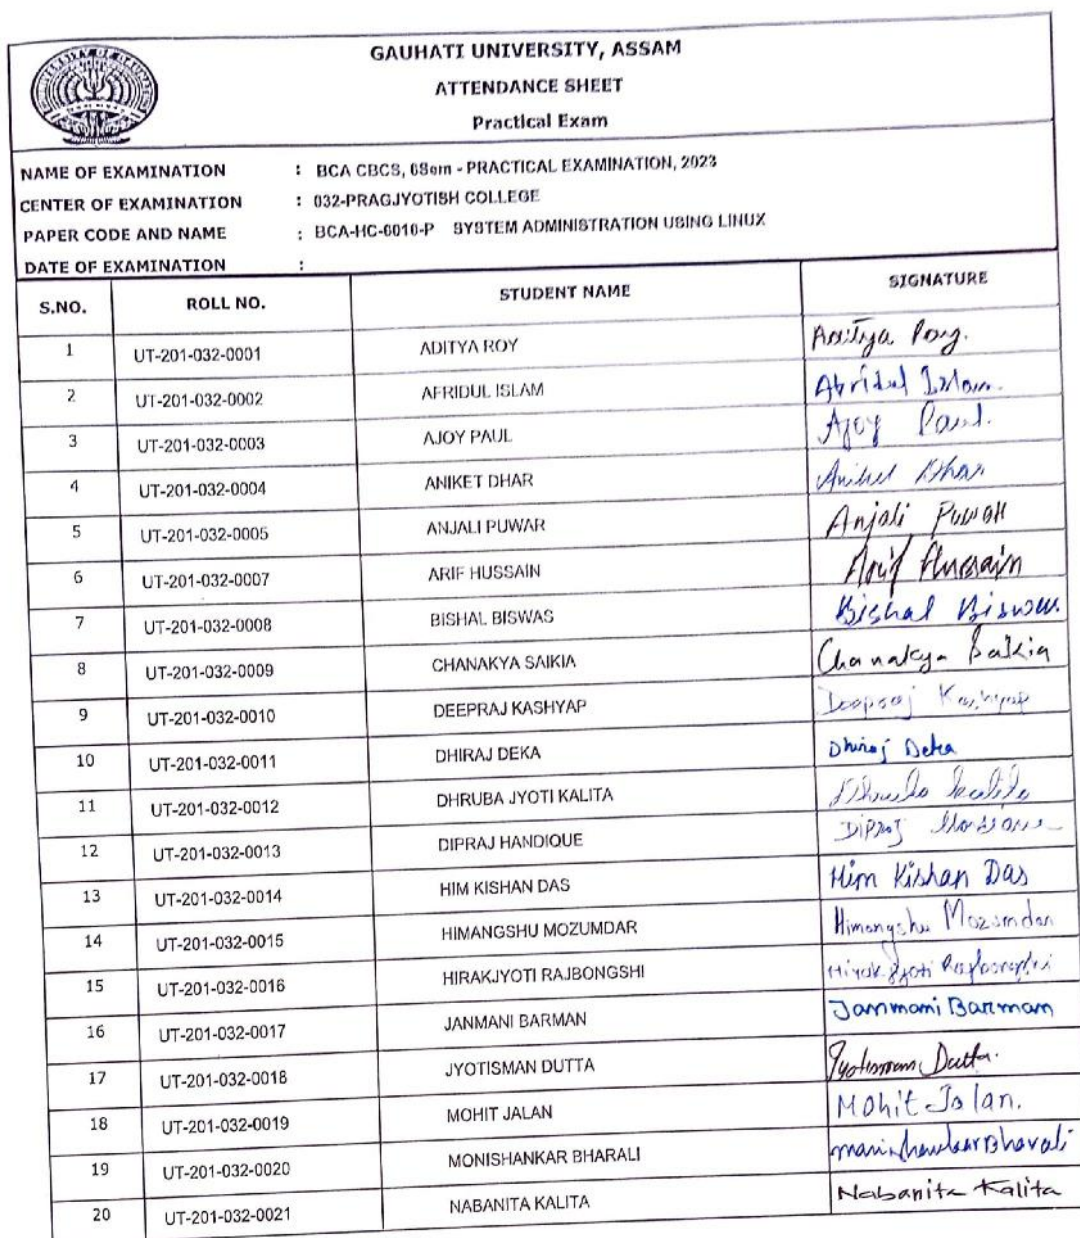 GAUHATI UNIVERSITY, ASSAM
ATTENDANCE SHEET
Practical Exam
NAME OF EXAMINATION : BCA CBCS, 6Sem - PRACTICAL EXAMINATION, 2023
CENTER OF EXAMINATION : 032-PRAGJYOTISH COLLEGE
PAPER CODE AND NAME : BCA-HC-6016-P SYSTEM ADMINISTRATION USING LINUX
DATE OF EXAMINATION :
S.NO. ROLL NO. STUDENT NAME SIGNATURE
1 UT-201-032-0001 ADITYA ROY Aditya Roy.
2 UT-201-032-0002 AFRIDUL ISLAM Afridul Islam.
3 UT-201-032-0003 AJOY PAUL Ajoy Paul.
4 UT-201-032-0004 ANIKET DHAR Aniket Dhar
5 UT-201-032-0005 ANJALI PUWAR Anjali Puwar
6 UT-201-032-0007 ARIF HUSSAIN Arif Hussain
7 UT-201-032-0008 BISHAL BISWAS Bishal Biswas.
8 UT-201-032-0009 CHANAKYA SAIKIA Chanakya Saikia
9 UT-201-032-0010 DEEPRAJ KASHYAP Deepraj Kashyap
10 UT-201-032-0011 DHIRAJ DEKA Dhiraj Deka
11 UT-201-032-0012 DHRUBA JYOTI KALITA Dhruba Kalita
12 UT-201-032-0013 DIPRAJ HANDIQUE Dipraj Handique
13 UT-201-032-0014 HIM KISHAN DAS Him Kishan Das
14 UT-201-032-0015 HIMANGSHU MOZUMDAR Himangshu Mozumdar
15 UT-201-032-0016 HIRAKJYOTI RAJBONGSHI Hirakjyoti Rajbongshi
16 UT-201-032-0017 JANMANI BARMAN Janmani Barman
17 UT-201-032-0018 JYOTISMAN DUTTA Jyotisman Dutta.
18 UT-201-032-0019 MOHIT JALAN Mohit Jalan.
19 UT-201-032-0020 MONISHANKAR BHARALI Monishankar Bharali
20 UT-201-032-0021 NABANITA KALITA Nabanita Kalita